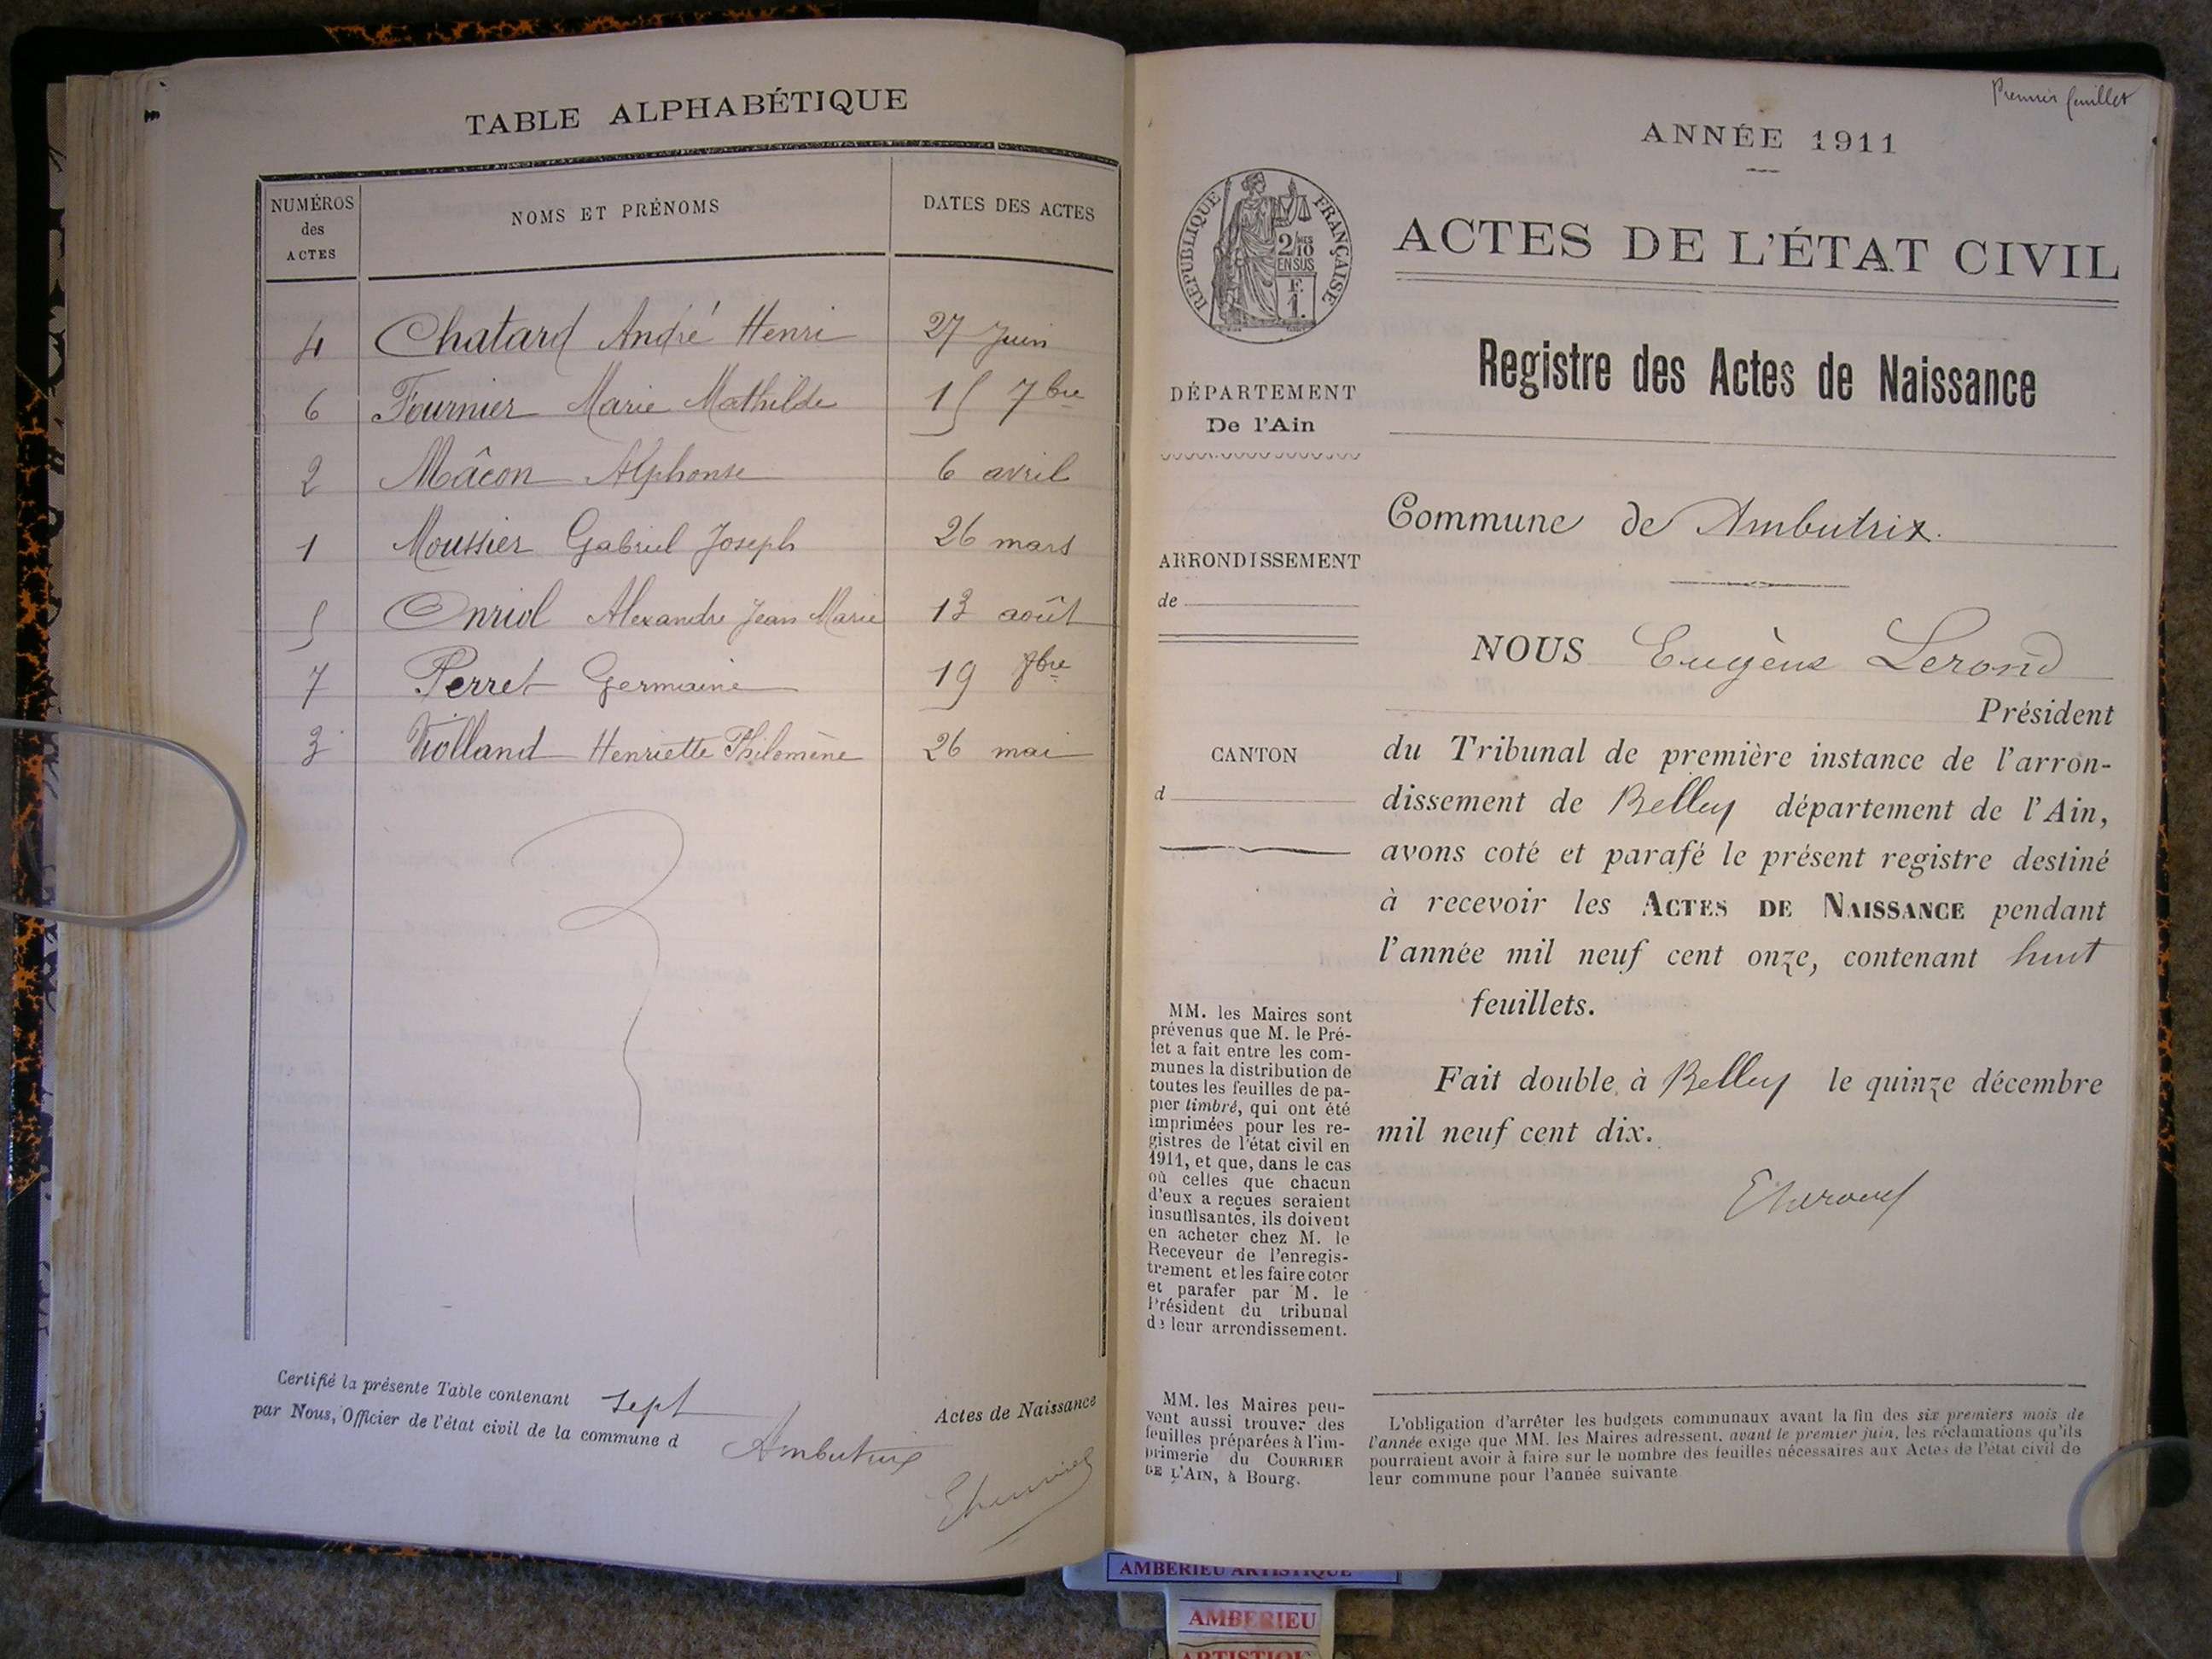 TABLE ALPHABÉTIQUE
NUMÉROS
des
ACTES
NOMS ET PRÉNOMS
DATES DES ACTES
4 Chatard André Henri 27 Juin
6 Fournier Marie Mathilde 15 7bre
2 Mâcon Alphonse 6 avril
1 Moussier Gabriel Joseph 26 mars
5 Onriol Alexandre Jean Marie 13 août
7 Perret Germaine 19
3 Violland Henriette Philomène 26 mai
Certifié la présente Table contenant sept Actes de Naissance
par Nous, Officier de l'état civil de la commune d Ambutrix
Premier feuillet
ANNÉE 1911
ACTES DE L'ÉTAT CIVIL
RÉPUBLIQUE FRANÇAISE
2/10MES
EN SUS
F.
1.
Registre des Actes de Naissance
DÉPARTEMENT
De l'Ain
ARRONDISSEMENT
de
CANTON
d
Commune de Ambutrix.
NOUS Eugène Lerond
Président
du Tribunal de première instance de l'arron-
dissement de Belley département de l'Ain,
avons coté et parafé le présent registre destiné
à recevoir les ACTES DE NAISSANCE pendant
l'année mil neuf cent onze, contenant huit
feuillets.
Fait double à Belley le quinze décembre
mil neuf cent dix.
MM. les Maires sont
prévenus que M. le Pré-
fet a fait entre les com-
munes la distribution de
toutes les feuilles de pa-
pier timbré, qui ont été
imprimées pour les re-
gistres de l'état civil en
1911, et que, dans le cas
où celles que chacun
d'eux a reçues seraient
insuffisantes, ils doivent
en acheter chez M. le
Receveur de l'enregis-
trement et les faire coter
et parafer par M. le
Président du tribunal
de leur arrondissement.
MM. les Maires peu-
vent aussi trouver des
feuilles préparées à l'im-
primerie du COURRIER
DE L'AIN, à Bourg.
L'obligation d'arrêter les budgets communaux avant la fin des six premiers mois de
l'année exige que MM. les Maires adressent, avant le premier juin, les réclamations qu'ils
pourraient avoir à faire sur le nombre des feuilles nécessaires aux Actes de l'état civil de
leur commune pour l'année suivante
AMBERIEU ARTISTIQUE
AMBERIEU
ARTISTIQUE